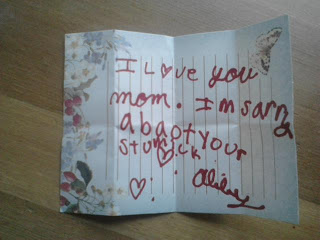 I L♡ve you
mom. I'm sarry
abaot your
stumick